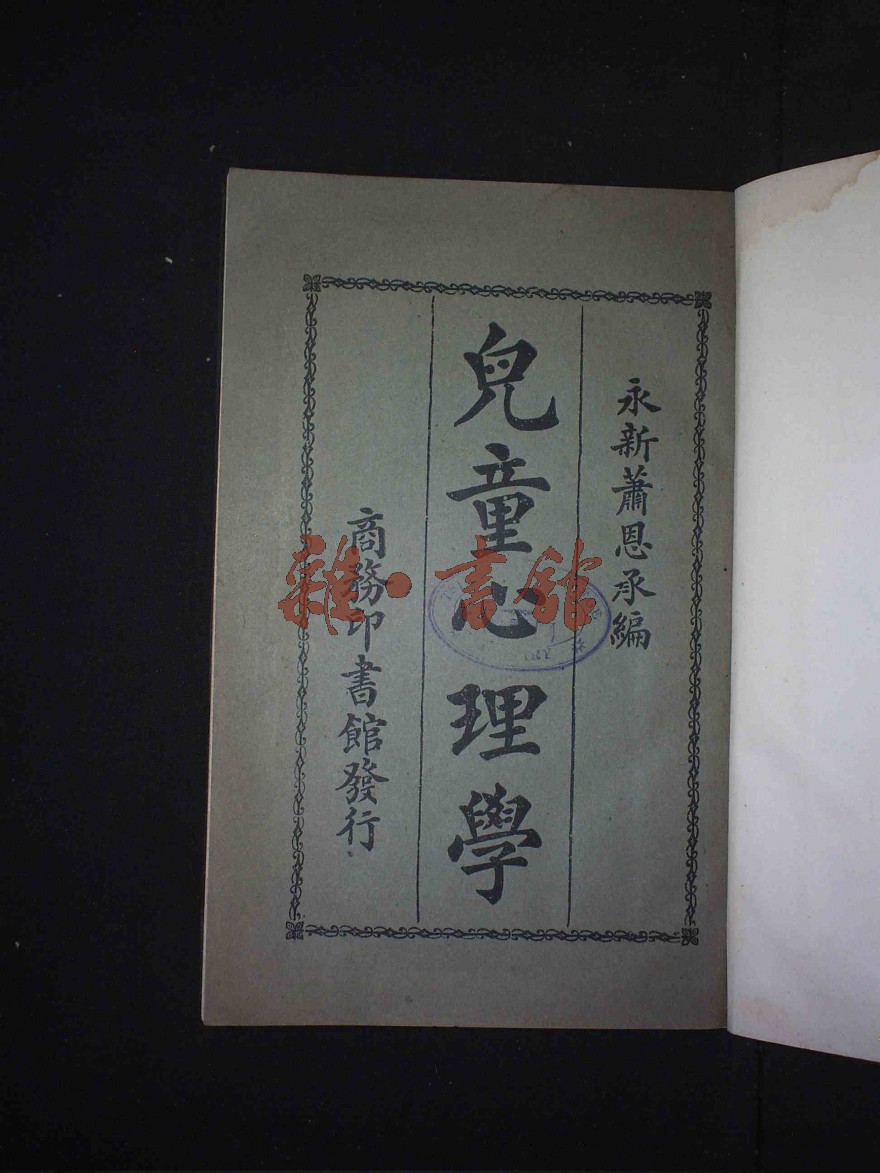 永新蕭恩承編
兒童心理學
商務印書館發行
雜·書館